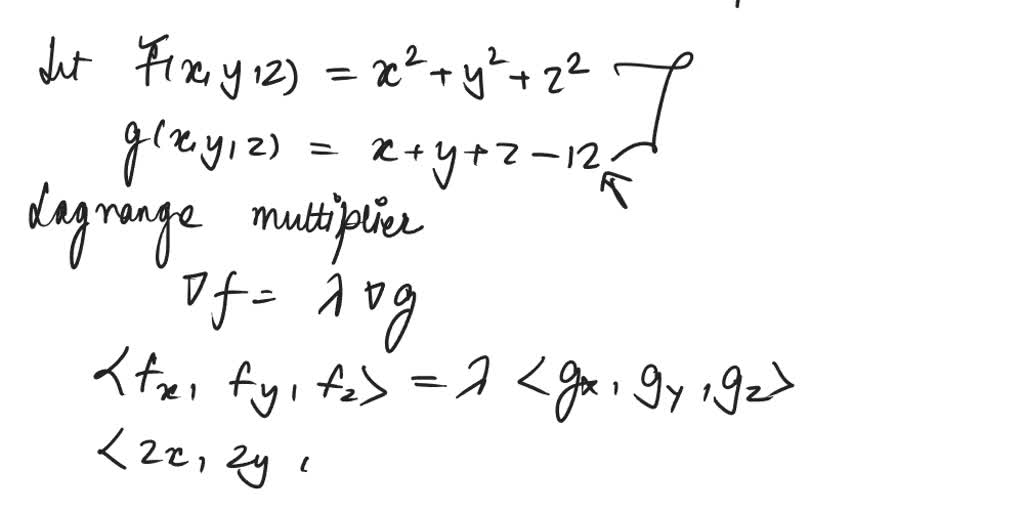 Let F(x,y,z) = x²+y²+z²
g(x,y,z) = x+y+z-12
Lagrange multiplier
∇f = λ∇g
<fx, fy, fz> = λ <gx, gy, gz>
<2x, 2y,